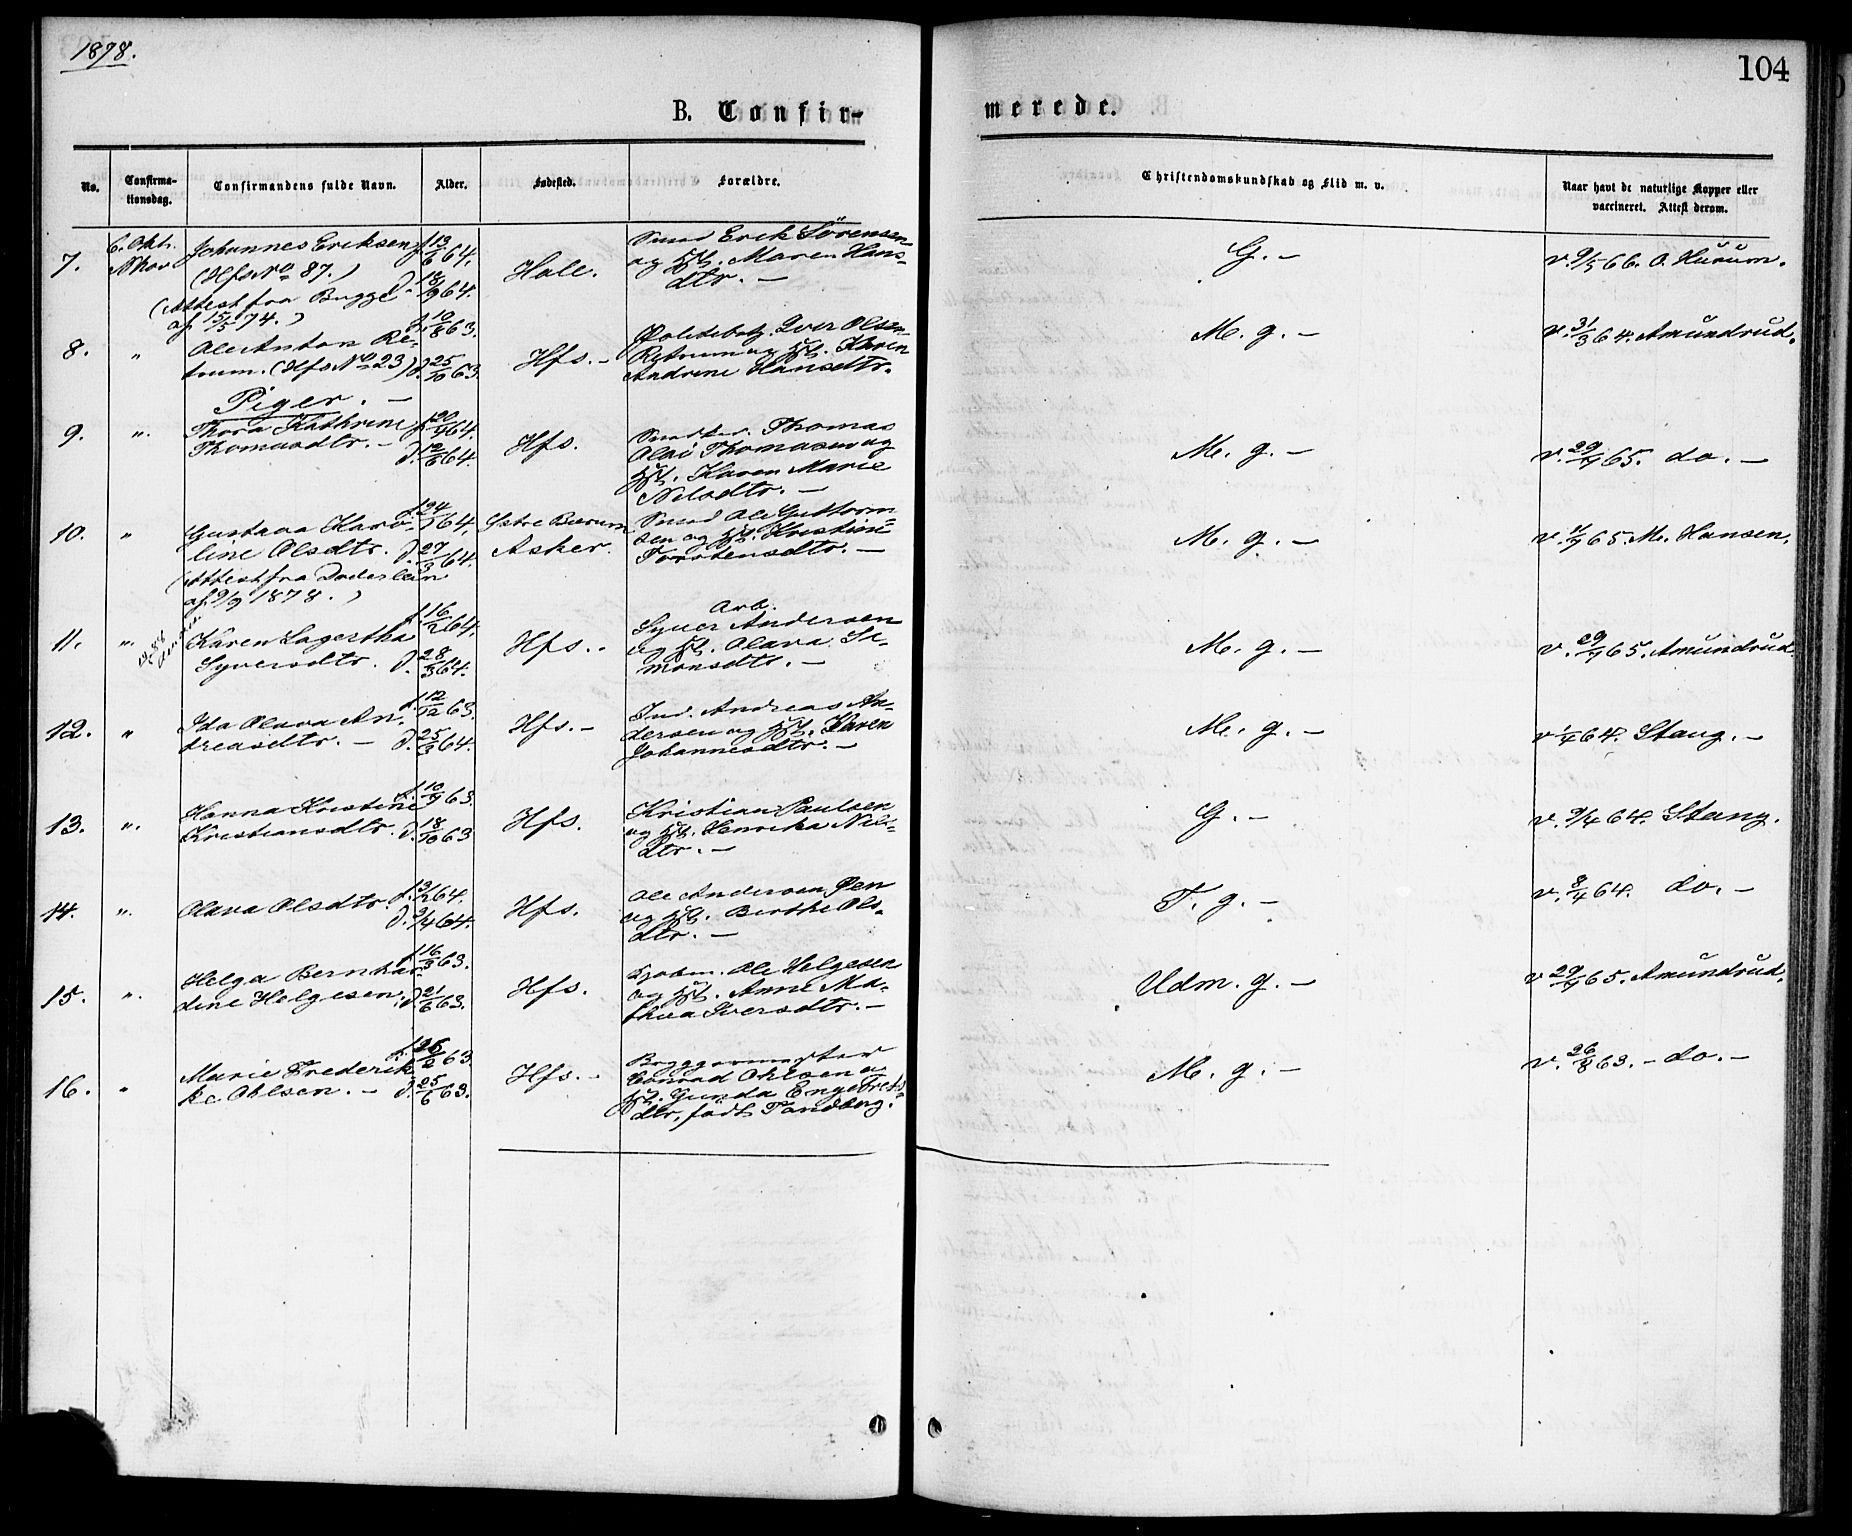 1878.
104
B. Confir-
merede.
No.
Confirma-
tionsdag.
Confirmandens fulde Navn.
Alder.
Fødested.
Forældre.
Christendomskundskab og Flid m. v.
Naar havt de naturlige Kopper eller
vaccineret. Attest derom.
7.
6. Okt.
Johannes Eriksen
(Hfs No 87.)
(Attest fra Bugge
af 15/5 74.)
f. 13/6 64,
d. 18/9 64.
Hole.
Smed Erik Sörensen
og Hst. Maren Hans-
dtr. —
G. —
v. 9/5 66. O. Huuum.
8.
"
Ole Anton Re-
trum. (Hfs No 23)
f. 10/8 63.
d. 25/10 63.
Hfs. —
Politibetj. Iver Olsen
Retrum og Hst. Karen
Andrine Hansdtr.
M. g. —
v. 31/3 64. Amundrud.
Piger. —
9.
"
Thora Kathrine
Thomasdtr. —
f. 20/4 64.
d. 12/6 64.
Hfs.
Thomas
Thomasen og
Hst. Karen Marie
Nilsdtr. —
M. g. —
v. 29/7 65. do. —
10.
"
Gustava Karo-
line Olsdtr.
(Attest fra Døderlein
af 9/9 1878.)
f. 24/1 64,
d. 27/3 64.
Østre Bærum
Asker.
Smed Ole Guttorm-
sen og Hst. Kristine
Torstensdtr. —
M. g. —
v. 11/7 65. M. Hansen.
11.
"
Karen Lagertha
Syversdtr.
f. 16/2 64,
d. 28/3 64.
Hfs. .
Arb.
Syver Andersen
og Hst. Olava Si-
monsdtr. —
M. g. —
v. 29/7 65. Amundrud.
12.
"
Ida Olava An-
dreasdtr. —
f. 12/12 63.
d. 25/3 64.
Hfs. —
Ind. Andreas An-
dersen og Hst. Karen
Johannesdtr. —
M. g. —
v. 1/4 64. Stang. —
13.
"
Hanna Kristine
Kristiansdtr.
f. 10/9 63.
d. 18/10 63
Hfs.
Kristian Paulsen
og Hst. Henrika Nils-
dtr. —
G. —
v. 9/4 64. Stang.
14.
"
Olava Olsdtr.
f. 3/2 64.
d. 9/4 64.
Hfs.
Ole Andersen Øen
og Hst. Berthe Ols-
dtr. —
T. g. —
v. 8/4 64. do. —
15.
"
Helga Bernhar-
dine Helgesen.
f. 16/3 63.
d. 21/6 63.
Hfs.
Ole Helgesen
og Hst. Anne Ma-
thea Iversdtr. —
Udm. g. —
v. 29/7 65. Amundrud.
16.
"
Marie Frederik-
ke Ohlsen. —
f. 26/2 63.
d. 25/6 63.
Hfs. —
Byggemester
Conrad Ohlsen og
Hst. Gunda Engebrets-
dtr, født Tandberg.
M. g. —
v. 26/8 63. — do. —